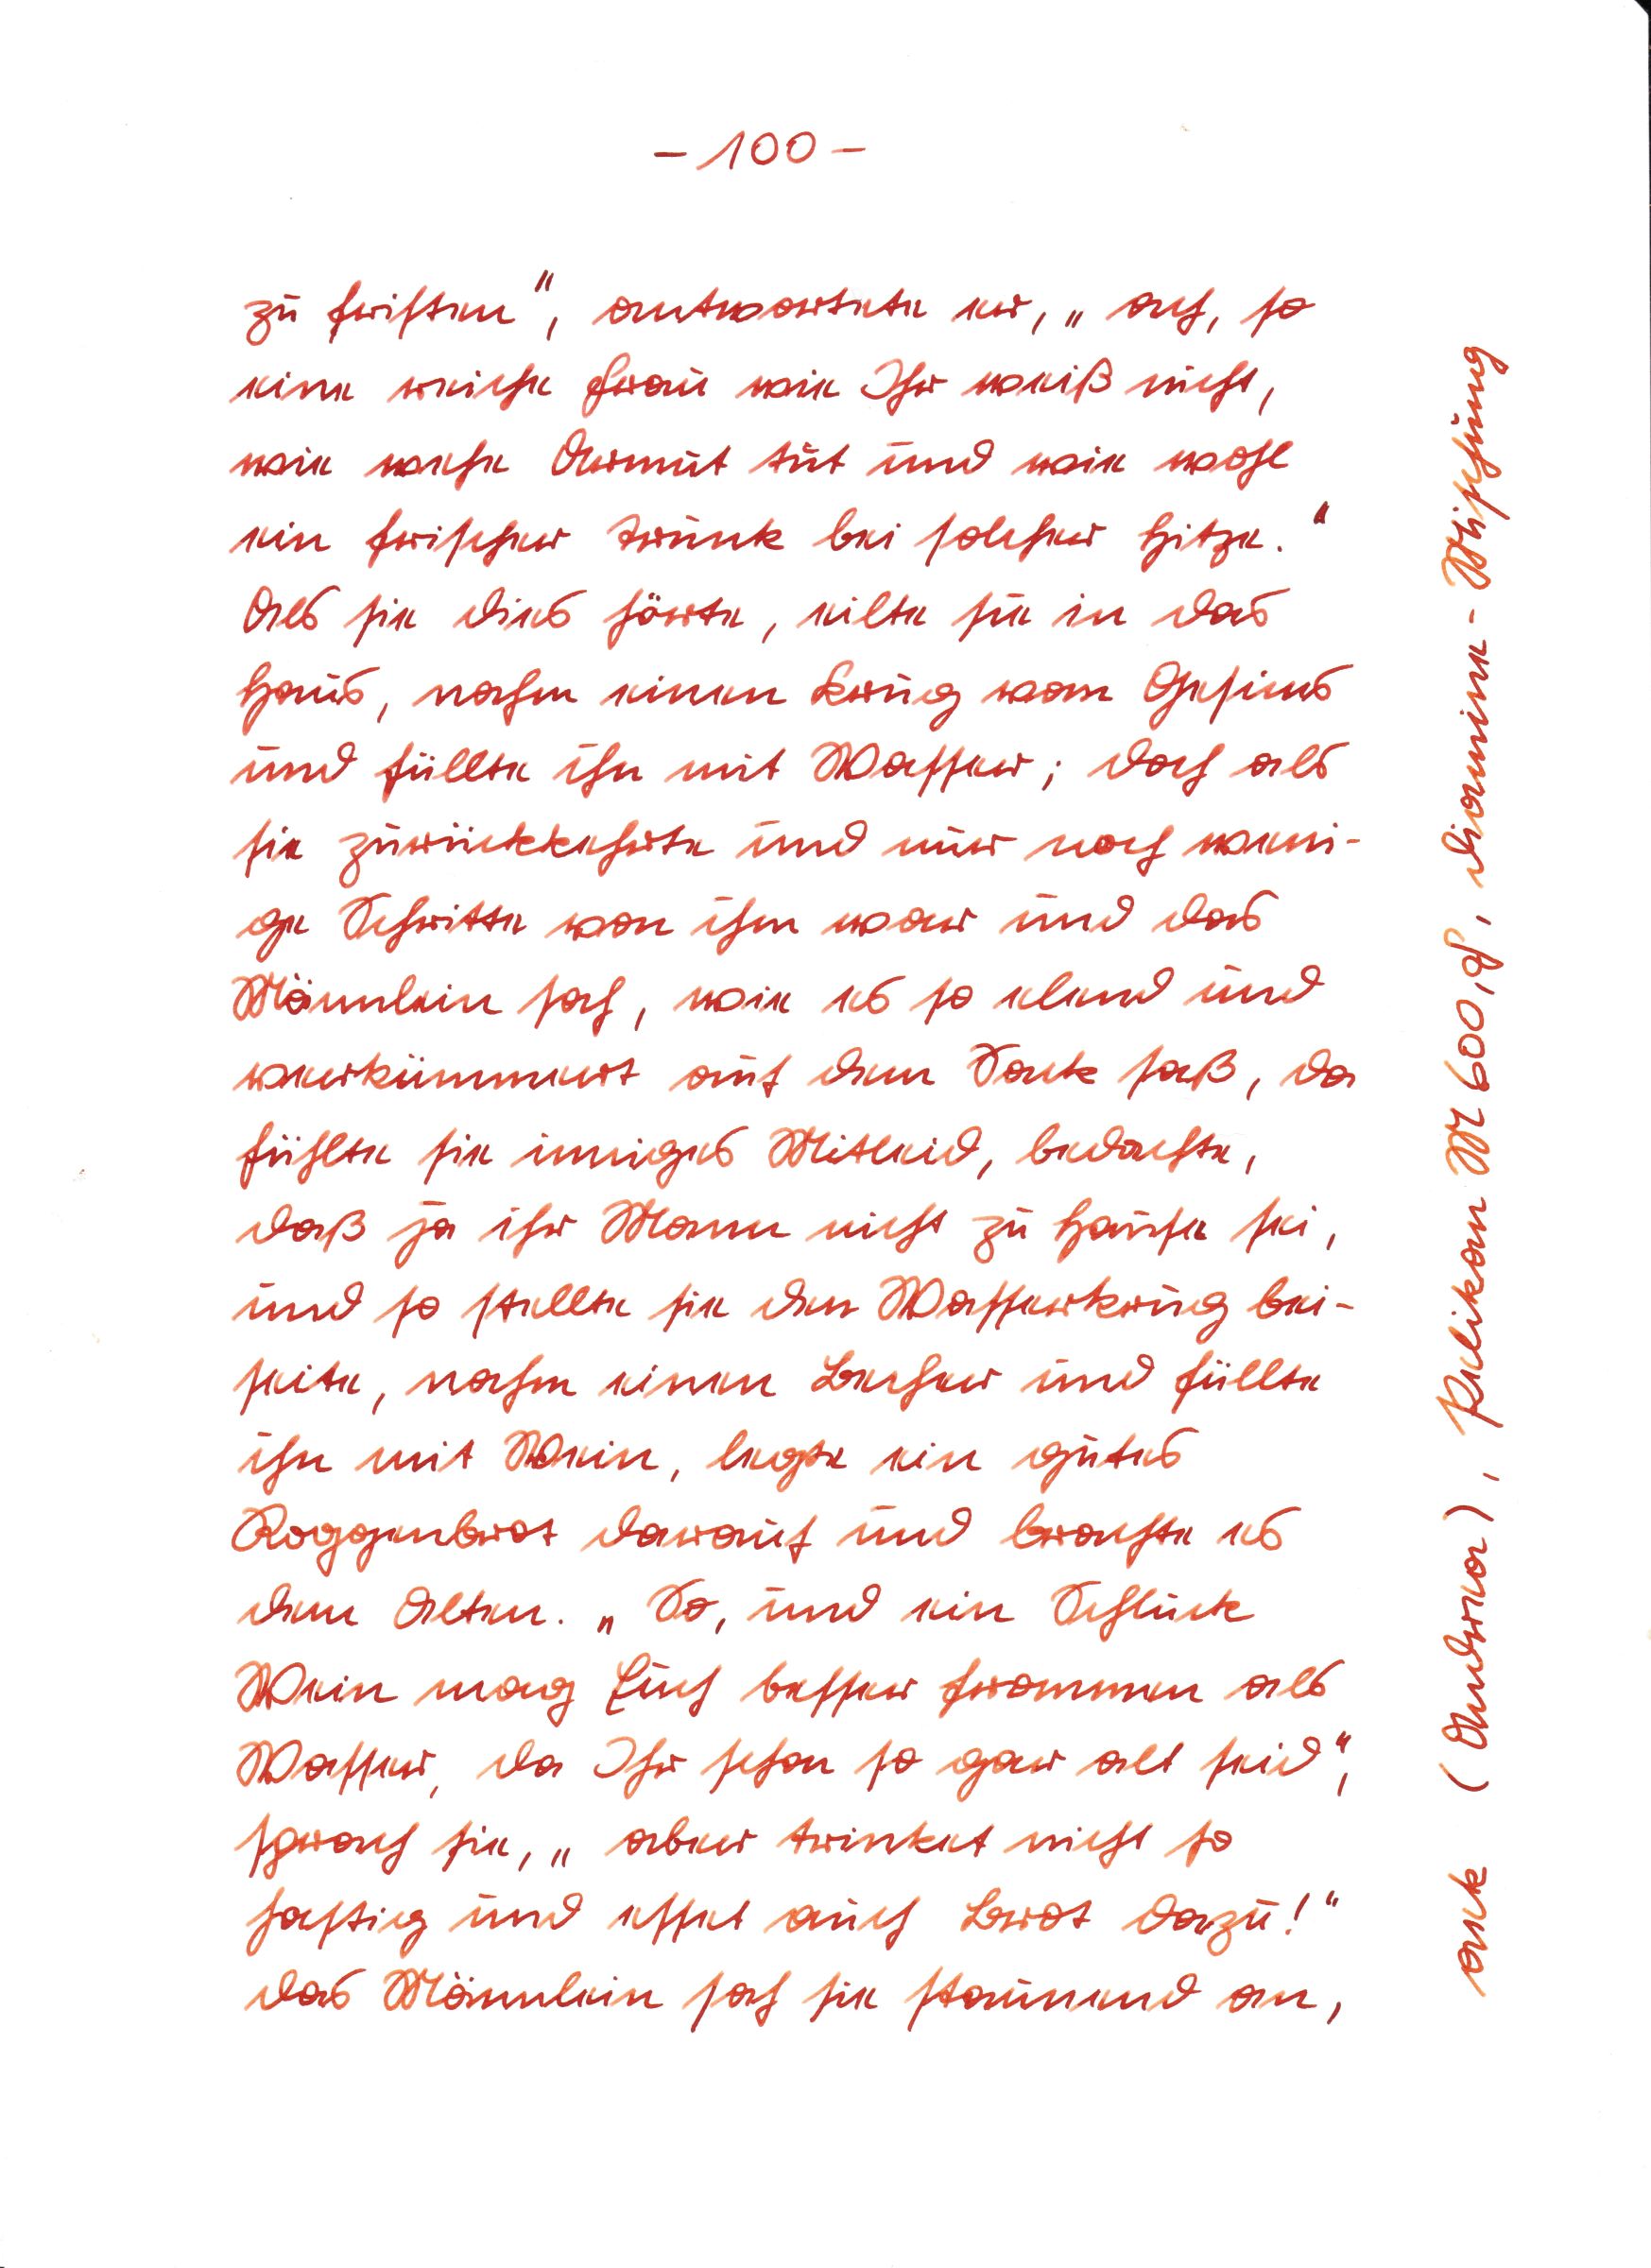 - 100 -
zu fristen“, antwortete er, „ach, so
eine reiche Frau wie Ihr weiß nicht,
wie wehe Armut tut und wie wohl
ein frischer Trunk bei solcher Hitze.“
Als sie dies hörte, eilte sie in das
Haus, nahm einen Krug vom Gesims
und füllte ihn mit Wasser; doch als
sie zurückkehrte und nur noch weni-
ge Schritte von ihm war und das
Männlein sah, wie es so elend und
verkümmert auf dem Sack saß, da
fühlte sie inniges Mitleid, bedachte,
daß ja ihr Mann nicht zu Hause sei,
und so stellte sie den Wasserkrug bei-
seite, nahm einen Becher und füllte
ihn mit Wein, legte ein gutes
Roggenbrot darauf und brachte es
dem Alten. „So, und ein Schluck
Wein mag Euch besser frommen als
Wasser, da Ihr schon so gar alt seid“,
sprach sie, „aber trinket nicht so
hastig und esset auch Brot dazu!“
Das Männlein sah sie staunend an,
aek (Andrea), Pelikan M 600, , Diamine-Mischung